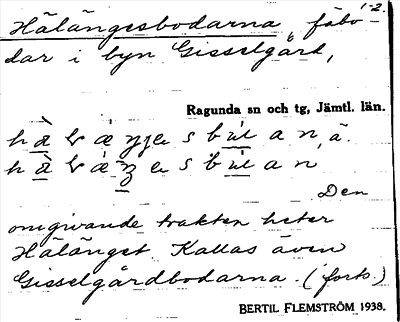 1-2.
Hålängesbodarna, fäbo-
dar i byn Gisselgård,
Ragunda sn och tg, Jämtl. län.
Den
omgivande trakten heter
Hålänget. Kallas även
Gisselgårdbodarna. (forts.)
BERTIL FLEMSTRÖM 1938.